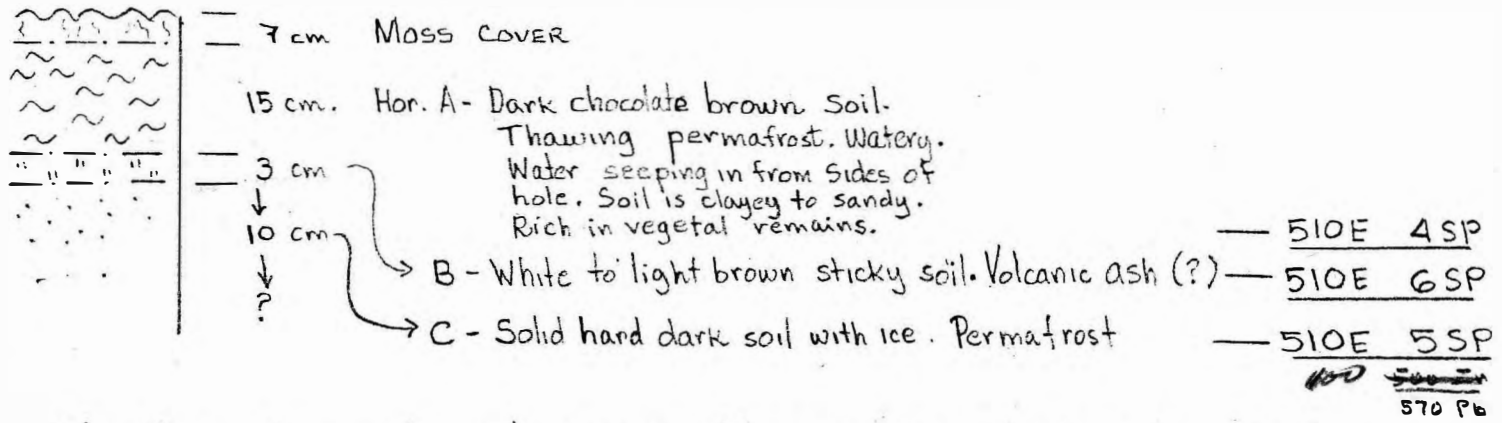 7 cm Moss COVER
15 cm. Hor. A - Dark chocolate brown soil.
Thawing permafrost. Watery.
3 cm Water seeping in from sides of
hole. Soil is clayey to sandy.
10 cm Rich in vegetal remains. — 510E 4SP
B - White to light brown sticky soil. Volcanic ash (?) — 510E 6SP
?
C - Solid hard dark soil with ice. Permafrost — 510E 5SP
570 Pb